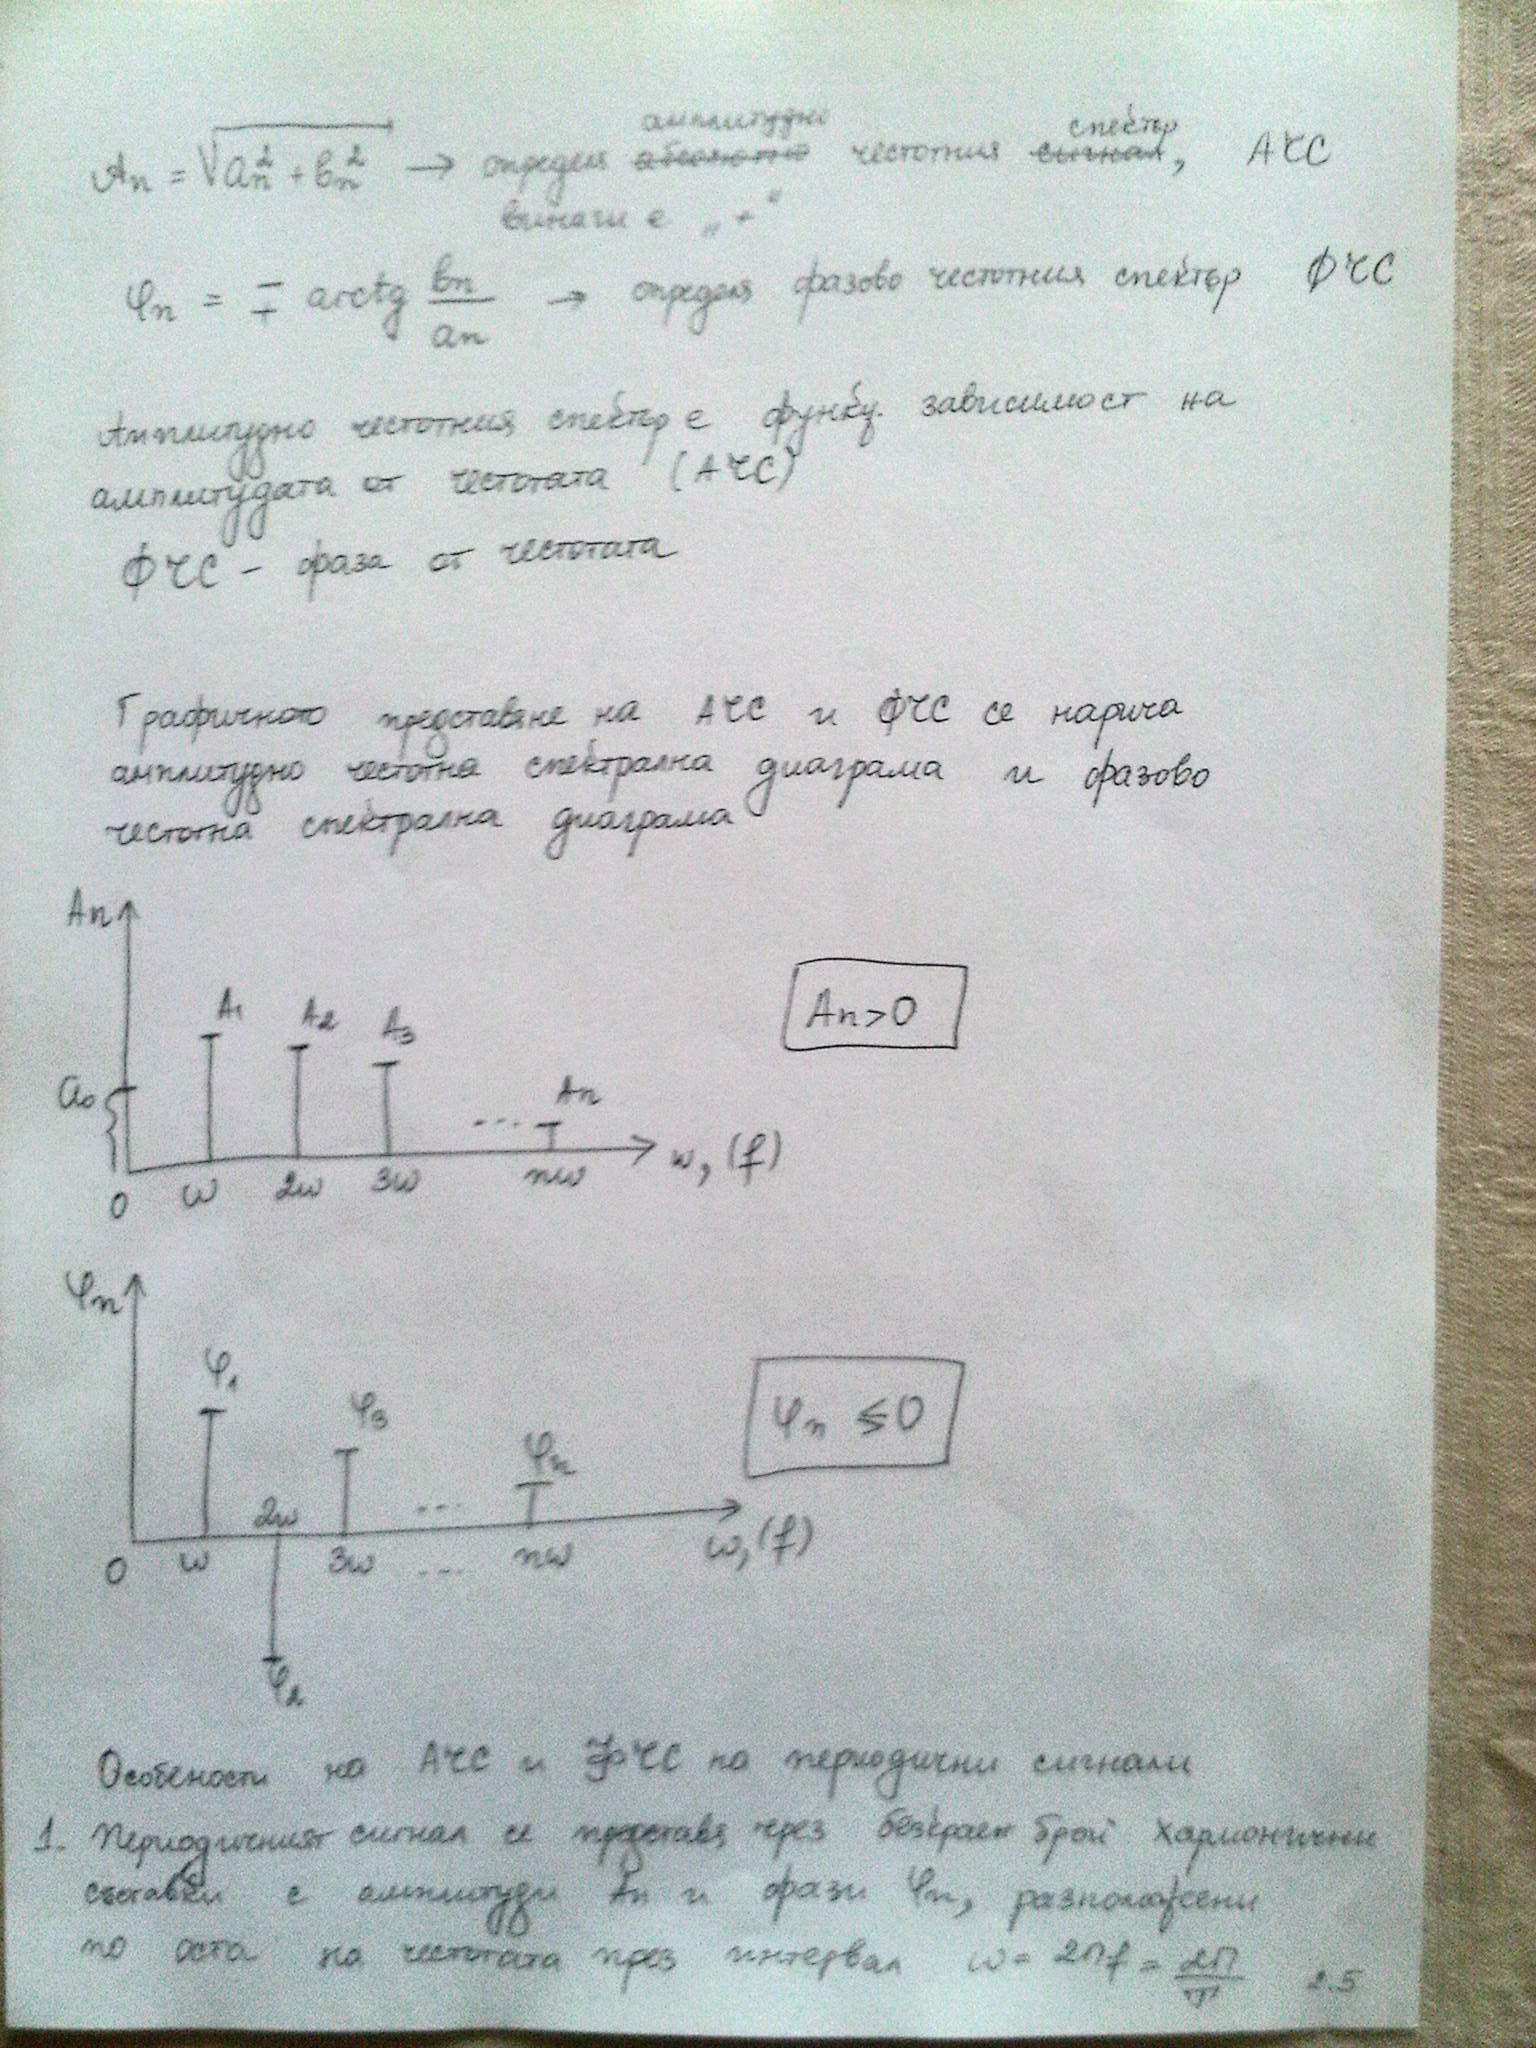 амплитудно спектър
An = √(an² + bn²) → определя абсолютно честотния сигнал, АЧС
винаги е „+“
φn = ∓ arctg bn/an → определя фазово честотния спектър ФЧС
Амплитудно честотния спектър е функц. зависимост на
амплитудата от честотата (АЧС)
ФЧС – фаза от честотата
Графичното представяне на АЧС и ФЧС се нарича
амплитудно честотна спектрална диаграма и фазово
честотна спектрална диаграма
An
A1 A2 A3 ... An
An>0
a0
0 ω 2ω 3ω nω ω, (f)
φn
φ1 φ3 ... φn
φn ≶ 0
2ω
0 ω 3ω ... nω ω, (f)
φ2
Особености на АЧС и ФЧС на периодични сигнали
1. Периодичният сигнал се представя чрез безкраен брой хармонични
съставки с амплитуди An и фази φn, разположени
по оста на честотата през интервал ω = 2Пf = 2П/T 2.5